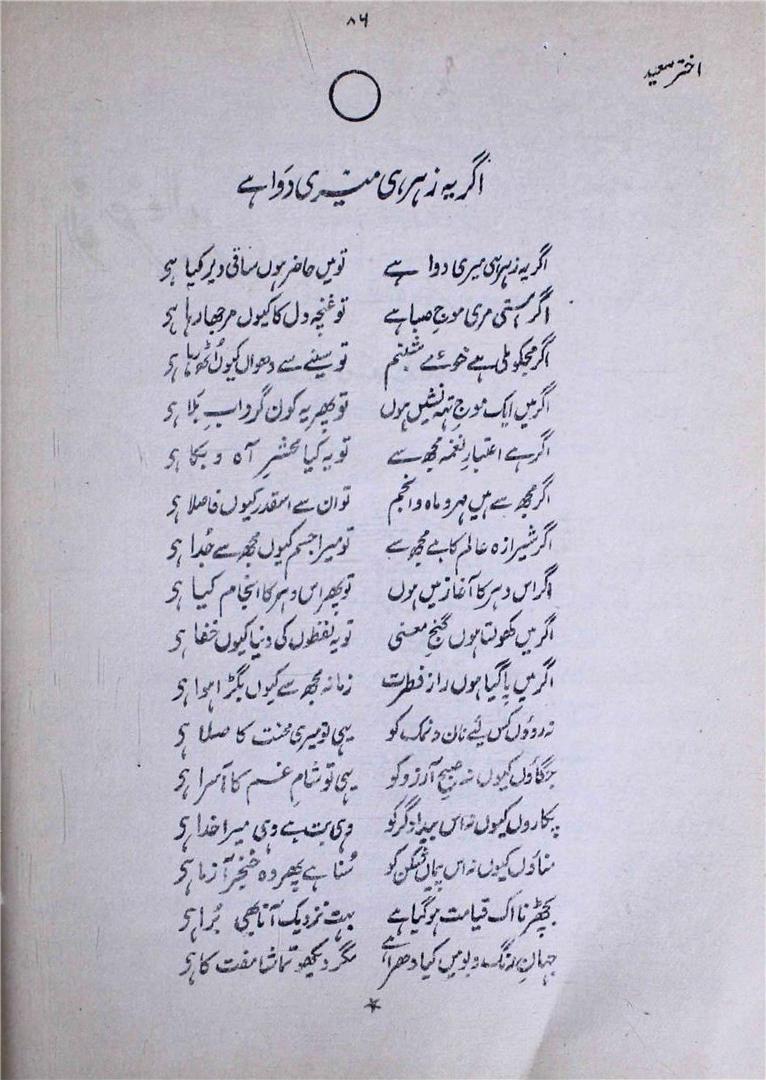 ۸۶
اختر سعید
اگر یہ زہر ہی میری دَوا ہے
اگر یہ زہر ہی میری دوا ہے تو میں حاضر ہوں ساقی دیر کیا ہے
اگر ہستی مری موجِ صبا ہے تو غنچہ دل کا کیوں مرجھا رہا ہے
اگر مجکو ملی ہے خوئے شبنم تو سینے سے دھواں کیوں اُٹھ رہا ہے
اگر میں ایک موجِ تہہ نشیں ہوں تو پھر یہ کون گردابِ بَلا ہے
اگر ہے اعتبارِ نغمہ مجھ سے تو یہ کیا محشرِ آہ و بکا ہے
اگر مجھ سے ہیں مہر و ماہ و انجم تو ان سے اسقدر کیوں فاصلا ہے
اگر شیرازہ عالم کا ہے مجھ سے تو میرا جسم کیوں مجھ سے جُدا ہے
اگر اس دہر کا آغاز میں ہوں تو پھر اس دہر کا انجام کیا ہے
اگر میں کھولتا ہوں گنجِ معنی تو یہ لفظوں کی دنیا کیوں خفا ہے
اگر میں پا گیا ہوں رازِ فطرت زمانہ مجھ سے کیوں بگڑا ہوا ہے
نہ روؤں کس لئے نان و نمک کو یہی تو میری محنت کا صلا ہے
جگاؤں کیوں نہ صبحِ آرزو کو یہی تو شامِ غم کا آسرا ہے
پکاروں کیوں نہ اس بیداد گر کو وہی بت ہے وہی میرا خدا ہے
مناؤں کیوں نہ اس پیماں شکن کو سُنا ہے پھر وہ خنجر آزما ہے
بچھڑنا اک قیامت ہو گیا ہے بہت نزدیک آنا بھی بُرا ہے
جہانِ رنگ و بو میں کیا دھرا ہے مگر دیکھو تماشا مفت کا ہے